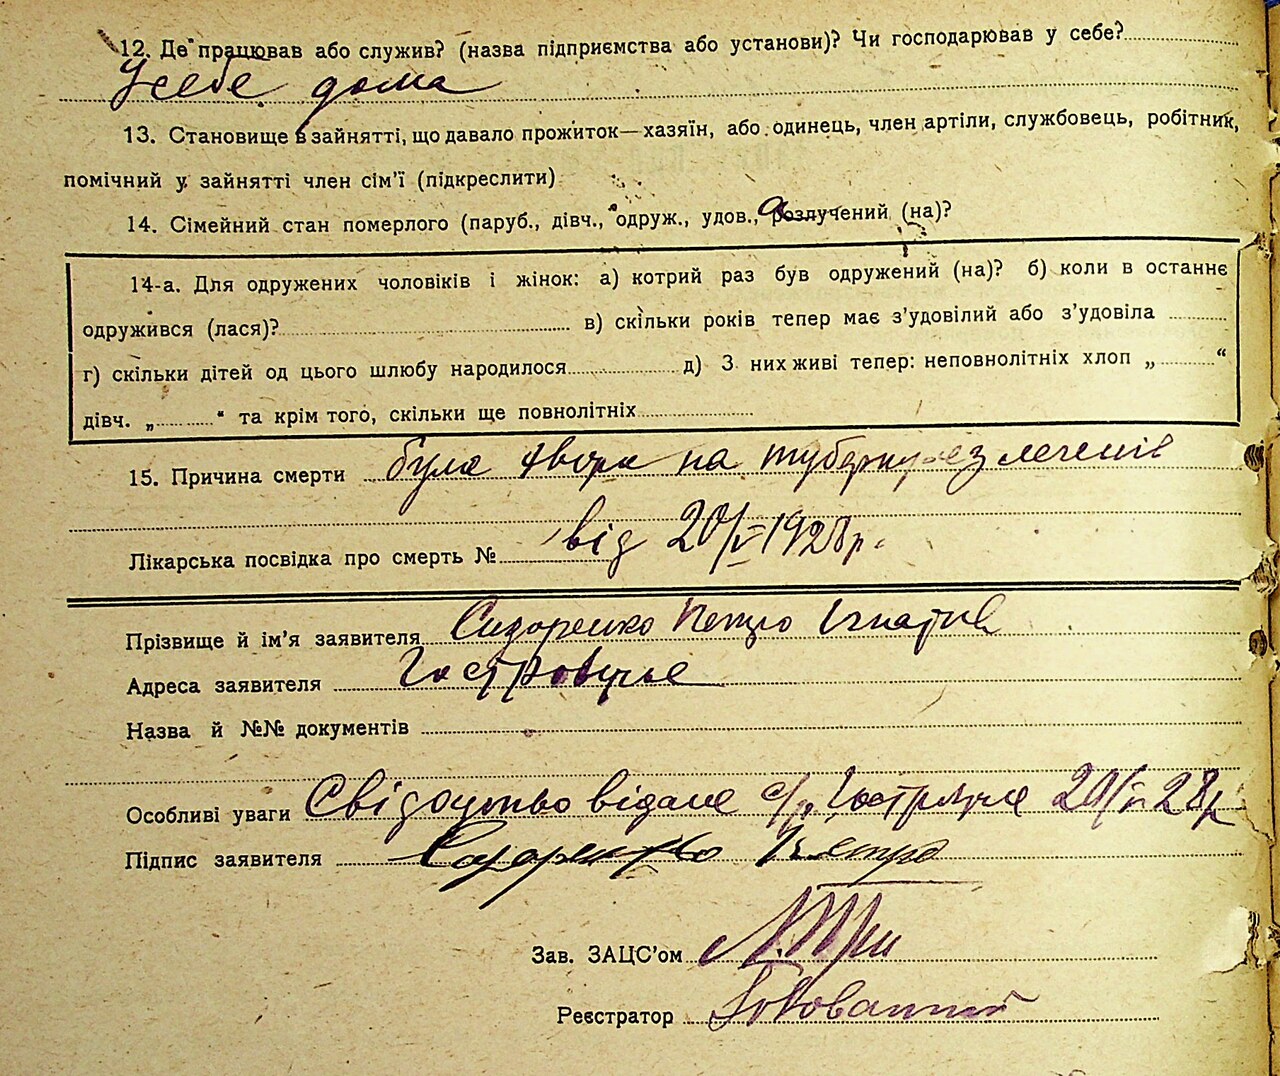 12. Де працював або служив? (назва підприємства або установи)? Чи господарював у себе?
У себе дома
13. Становище в зайнятті, що давало прожиток—хазяїн, або одинець, член артіли, службовець, робітник,
помічний у зайнятті член сім'ї (підкреслити)
14. Сімейний стан померлого (паруб., дівч., одруж., удов., розлучений (на)?
14-а. Для одружених чоловіків і жінок: а) котрий раз був одружений (на)? б) коли в останнє
одружився (лася)? в) скільки років тепер має з'удовілий або з'удовіла
г) скільки дітей од цього шлюбу народилося д) З них живі тепер: неповнолітніх хлоп „ “
дівч. „ “ та крім того, скільки ще повнолітніх
15. Причина смерти була хвора на туберкулез легенів
Лікарська посвідка про смерть № від 20/V 1928 р.
Прізвище й ім'я заявителя Сидоренко Петро Ігнатів
Адреса заявителя
Назва й №№ документів
Особливі уваги Свідоцтво видане с/р. 28 р
Підпис заявителя Сидоренко Петро
Зав. ЗАЦС'ом
Реєстратор